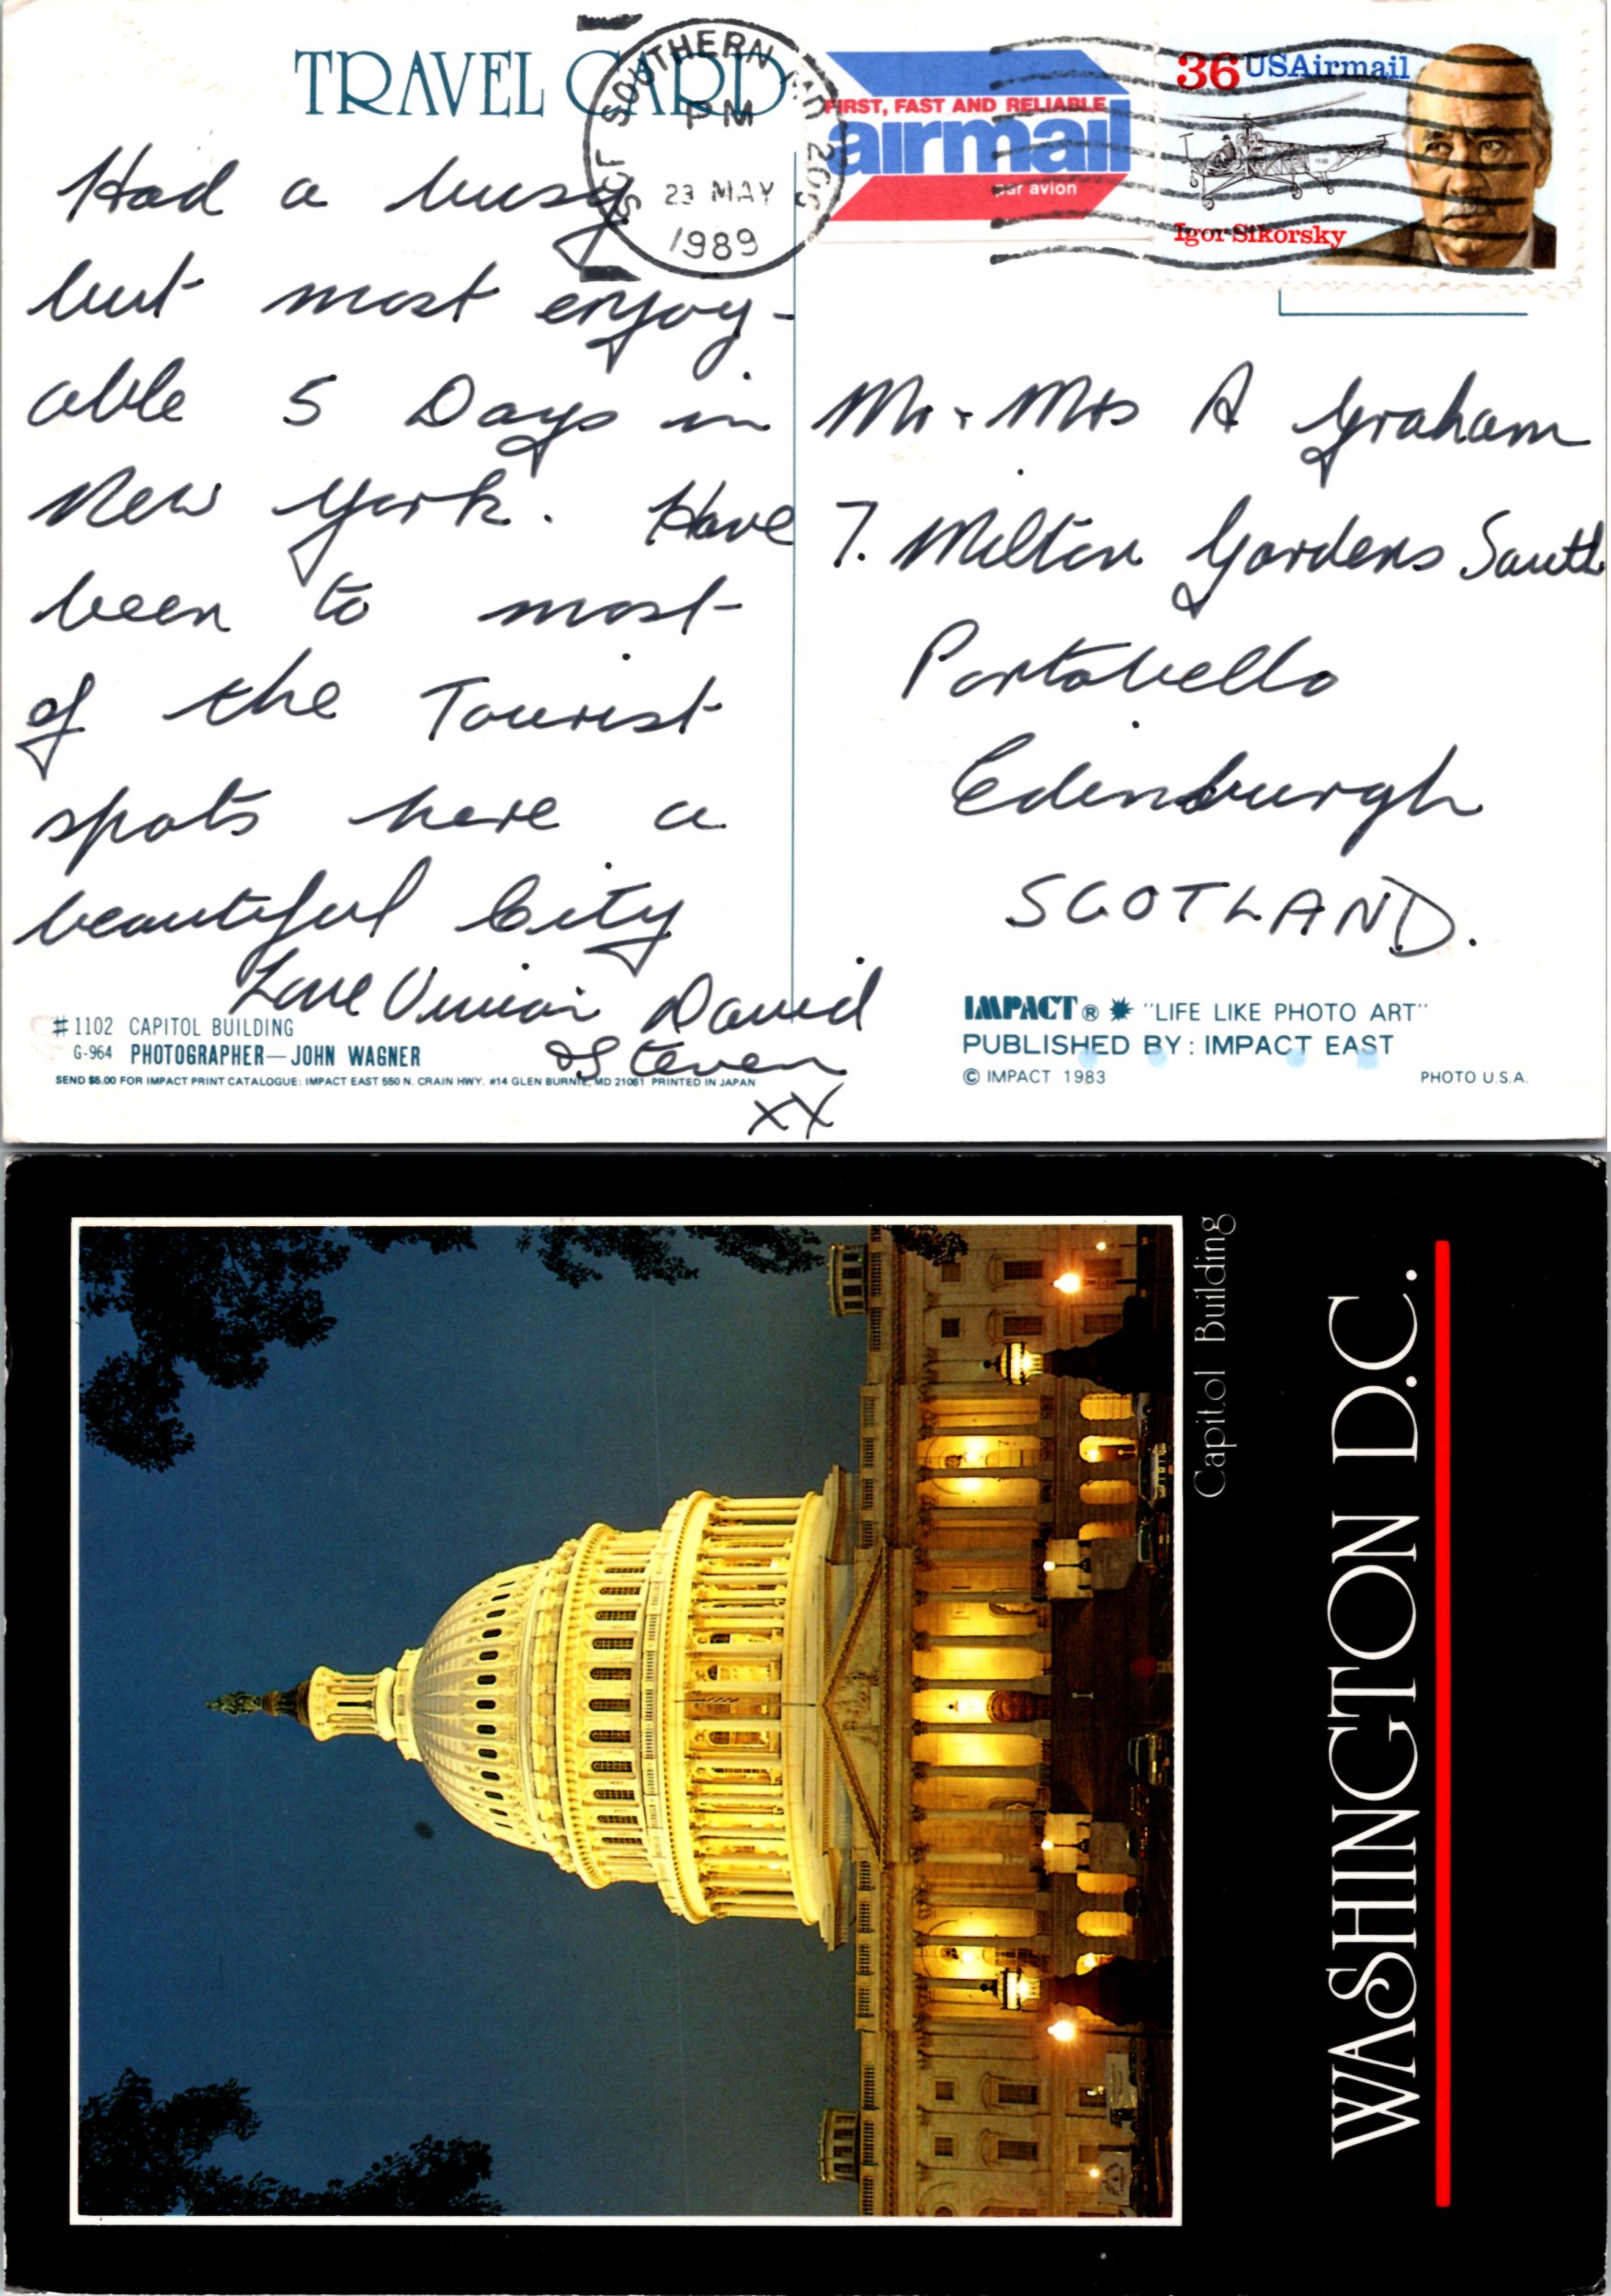 TRAVEL CARD
SOUTHERN MD 20
PM
23 MAY
1989
FIRST, FAST AND RELIABLE
airmail
par avion
36 USAirmail
Igor Sikorsky
Had a busy
but most enjoy-
able 5 Days in
New York. Have
been to most
of the Tourist
spots here a
beautiful City
Love Vivian David
& Steven
XX
Mr + Mrs A Graham
7. Milton Gardens South
Portobello
Edinburgh
SCOTLAND.
#1102 CAPITOL BUILDING
G-964 PHOTOGRAPHER—JOHN WAGNER
SEND $5.00 FOR IMPACT PRINT CATALOGUE: IMPACT EAST 550 N. CRAIN HWY. #14 GLEN BURNIE, MD 21061 PRINTED IN JAPAN
IMPACT® "LIFE LIKE PHOTO ART"
PUBLISHED BY: IMPACT EAST
© IMPACT 1983
PHOTO U.S.A.
Capitol Building
WASHINGTON D.C.